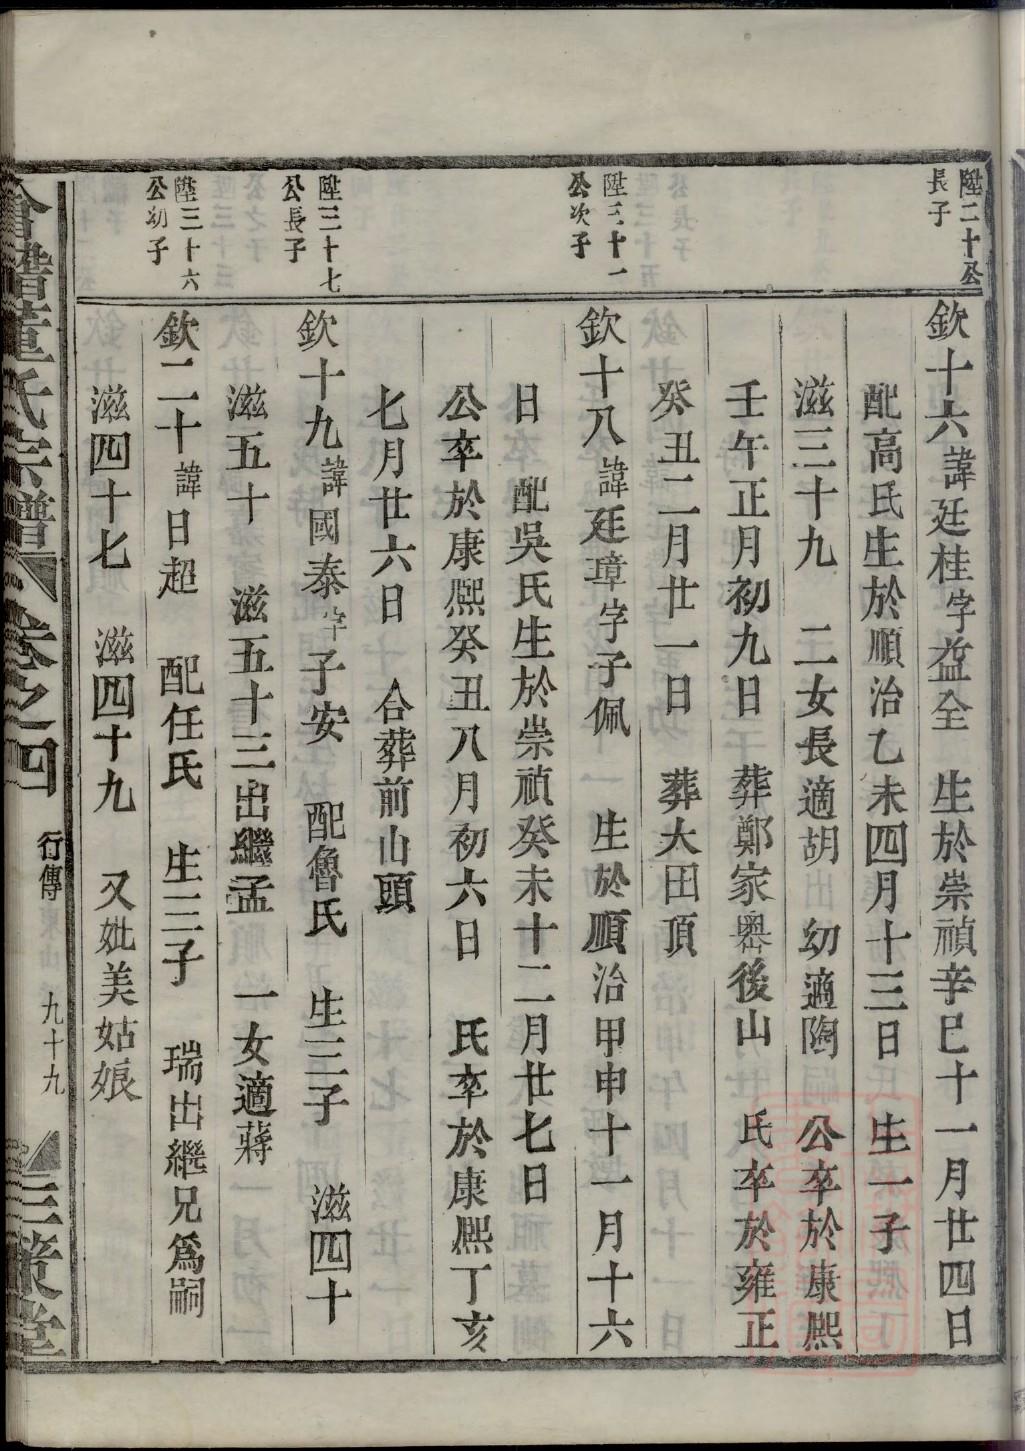 陞二十公
長子
欽十六諱廷桂字益全　生於崇禎辛巳十一月廿四日
配高氏生於順治乙未四月十三日　生一子
滋三十九　二女長適胡　幼適陶　公卒於康熙
壬午正月初九日　葬鄭家嶴後山　氏卒於雍正
癸丑二月廿一日　葬大田頂
陞三十一
公次子
欽十八諱廷璋字子佩　生於順治甲申十一月十六
日　配吳氏生於崇禎癸未十二月廿七日
公卒於康熙癸丑八月初六日　氏卒於康熙丁亥
七月廿六日　合葬前山頭
陞三十七
公長子
欽十九諱國泰字子安　配魯氏　生三子　滋四十
滋五十　滋五十三出繼孟　一女適蔣
陞三十六
公幼子
欽二十諱日超　配任氏　生三子　瑞出繼兄爲嗣
滋四十七　滋四十九　又妣美姑娘
董氏宗譜　卷之四　行傳　九十九　三策堂